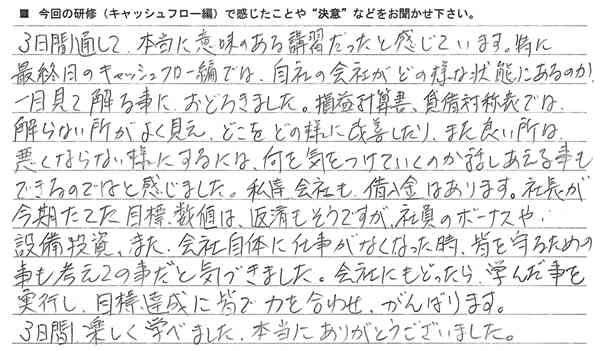 ■ 今回の研修（キャッシュフロー編）で感じたことや“決意”などをお聞かせ下さい。
3日間通して、本当に意味のある講習だったと感じています。特に
最終日のキャッシュフロー編では、自社の会社がどの様な状態にあるのか
一目見て解る事に、おどろきました。損益計算書、貸借対称表では、
解らない所がよく見え、どこをどの様に改善したり、また良い所は、
悪くならない様にするには、何を気をつけていくのか話しあえる事も
できるのではと感じました。私達会社も、借入金はあります。社長が
今期たてた目標、数値は、返済もそうですが、社員のボーナスや、
設備投資、また、会社自体に仕事がなくなった時、皆を守るための
事も考えての事だと気づきました。会社にもどったら、学んだ事を
実行し、目標、達成に皆で力を合わせ、がんばります。
3日間、楽しく学べました、本当にありがとうございました。